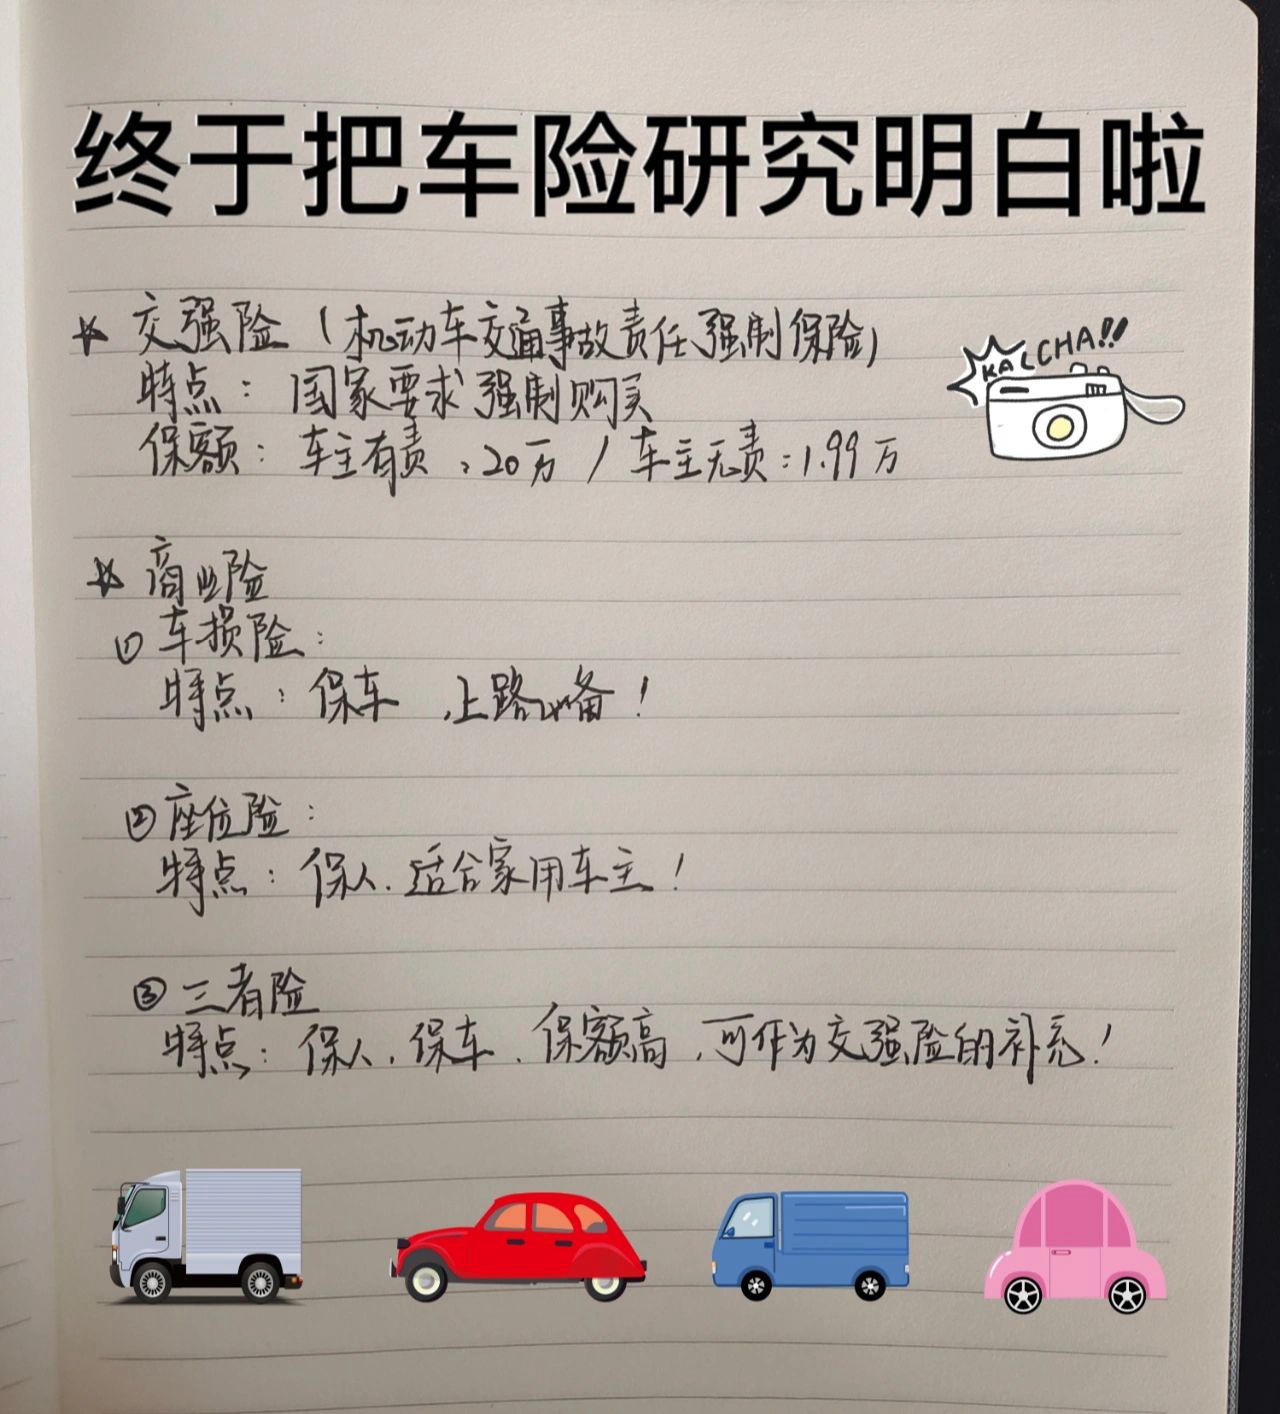 终于把车险研究明白啦
☆ 交强险（机动车交通事故责任强制保险）
KALCHA!!
特点：国家要求强制购买
保额：车主有责：20万 / 车主无责：1.99万
☆ 商业险
① 车损险：
特点：保车，上路必备！
② 座位险：
特点：保人，适合家用车主！
③ 三者险
特点：保人，保车，保额高，可作为交强险的补充！